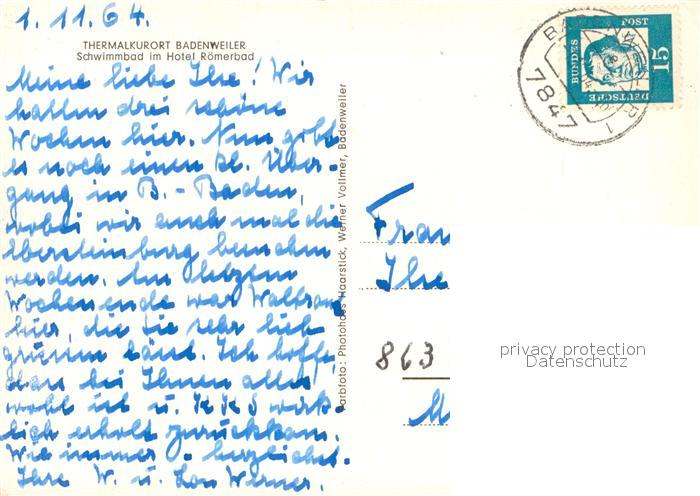 1.11.64.
THERMALKURORT BADENWEILER
Schwimmbad im Hotel Römerbad
Meine liebe Ihe! Wir
hatten drei schöne
Wochen hier. Nun gibt
es noch einen kl. Über-
gang in B.-Baden,
wobei wir auch mal die
Ebersteinburg besuchen
werden. Am letzten
Wochenende war
hier, die Sie sehr lieb
grüssen lässt. Ich hoffe,
dass bei Ihnen alles
wohl ist u. wirk-
lich erholt zurückkam.
Wie immer herzlichst
Ihre W. u. Werner.
Farbfoto: Photohaus Haarstick, Werner Vollmer, Badenweiler
DEUTSCHE BUNDESPOST 15
7847
Frau
Ihe
863
M
privacy protection
Datenschutz